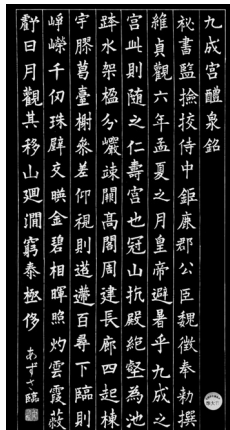 九成宮醴泉銘
祕書監撿挍侍中鉅鹿郡公臣魏徵奉勅撰
維貞觀六年孟夏之月皇帝避暑乎九成之
宮此則隨之仁壽宮也冠山抗殿絕壑為池
跨水架楹分巖竦闕高閣周建長廊四起棟
宇膠葛臺榭參差仰視則迢遰百尋下臨則
崢嶸千仞珠璧交暎金碧相暉照灼雲霞蔽
虧日月觀其移山迴澗窮泰極侈
あずさ臨